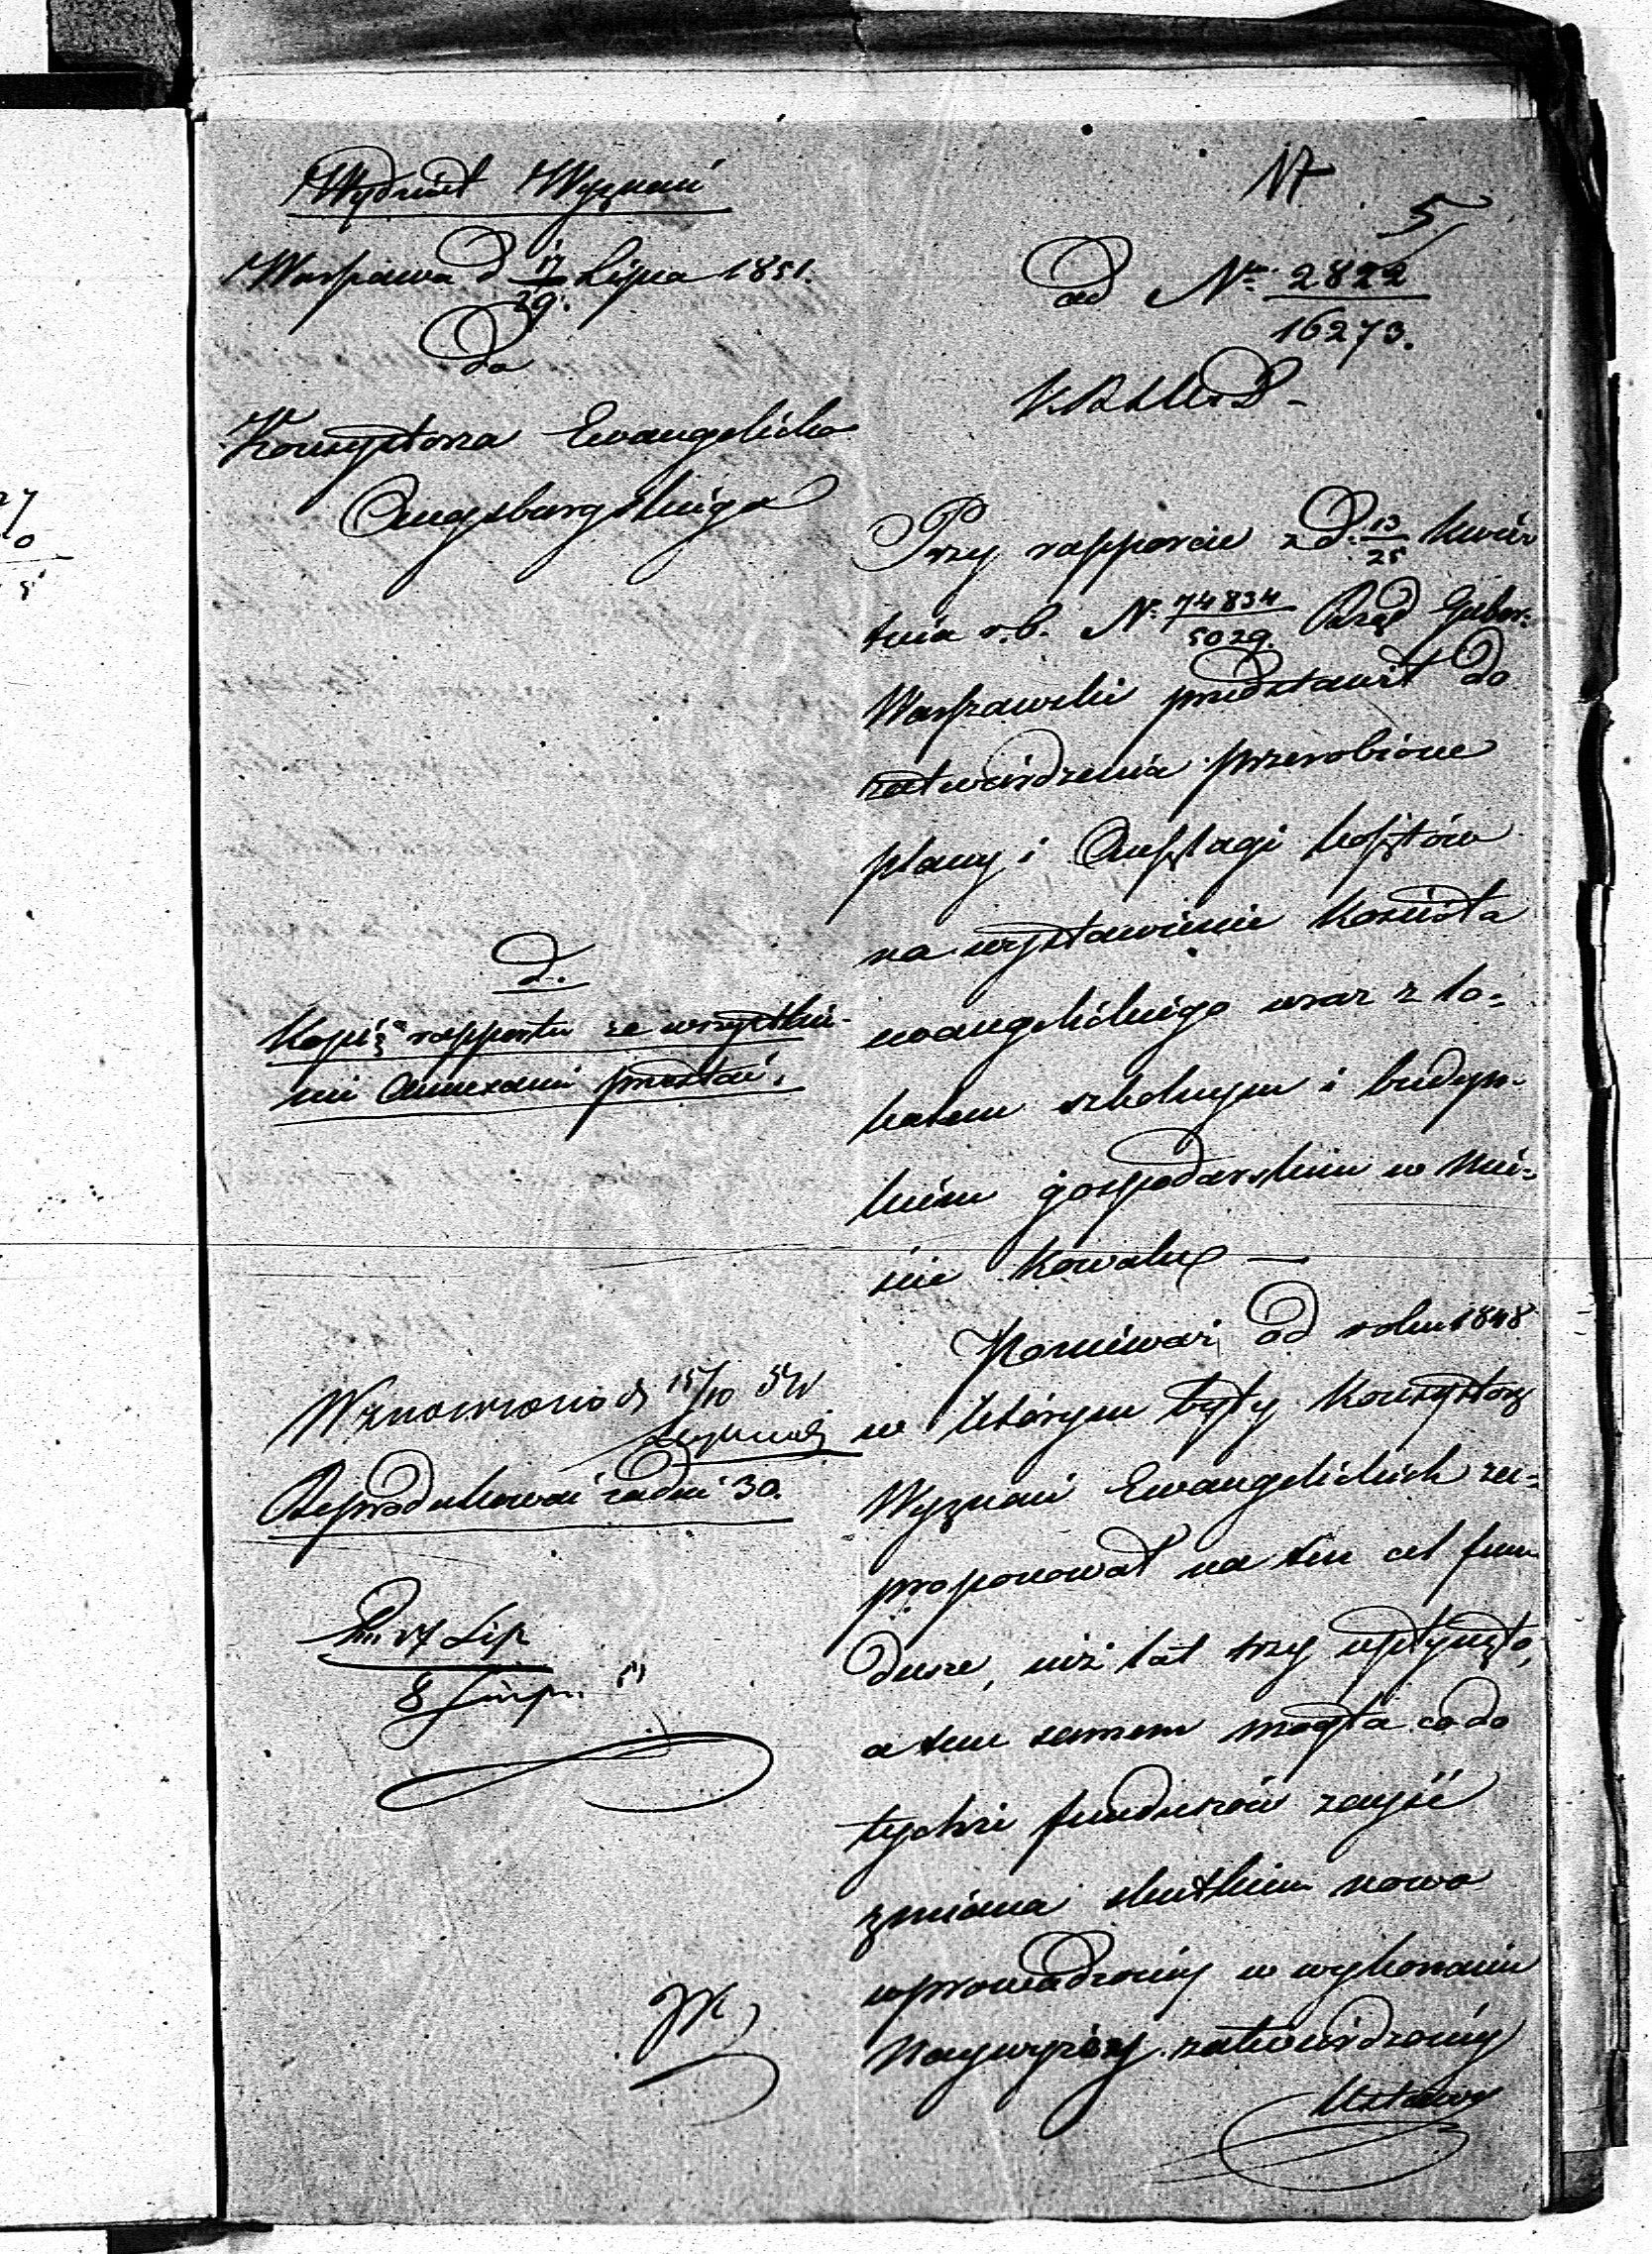 Wydział Wyznań
Warszawa d 17/29. Lipca 1851.
Do
Konsystorza Ewangelicko
Augsburgskiego
d.
Kopię rapportu ze wszystkie-
mi Annexami przesłać.
Wznowiono d 15/10
Reprodukować za dni 30.
17 Lip
8 Sierp.
17
5
ad Nr. 2822/16273.
Przy rapporcie z d. 13/25 Kwie-
tnia r.b. N. 74834/5029. Rząd Guber:
Warszawski przedstawił do
zatwierdzenia przerobione
plany i Anszlagi kosztów
na wystawienie Kościoła
ewangelickiego wraz z lo-
kalem szkolnym i budyn-
kiem gospodarskim w mie-
ście Kowalu —
Ponieważ od roku 1848
w którym były Konsystorz
Wyznań Ewangelickich za-
proponował na ten cel fun
dusze, już lat trzy upłynęło,
a tem samem mogła co do
tychże funduszów zayść
zmiana skutkiem nowo
wprowadzonéy w wykonanie
Naywyżéy zatwierdzonéy
Ustawy